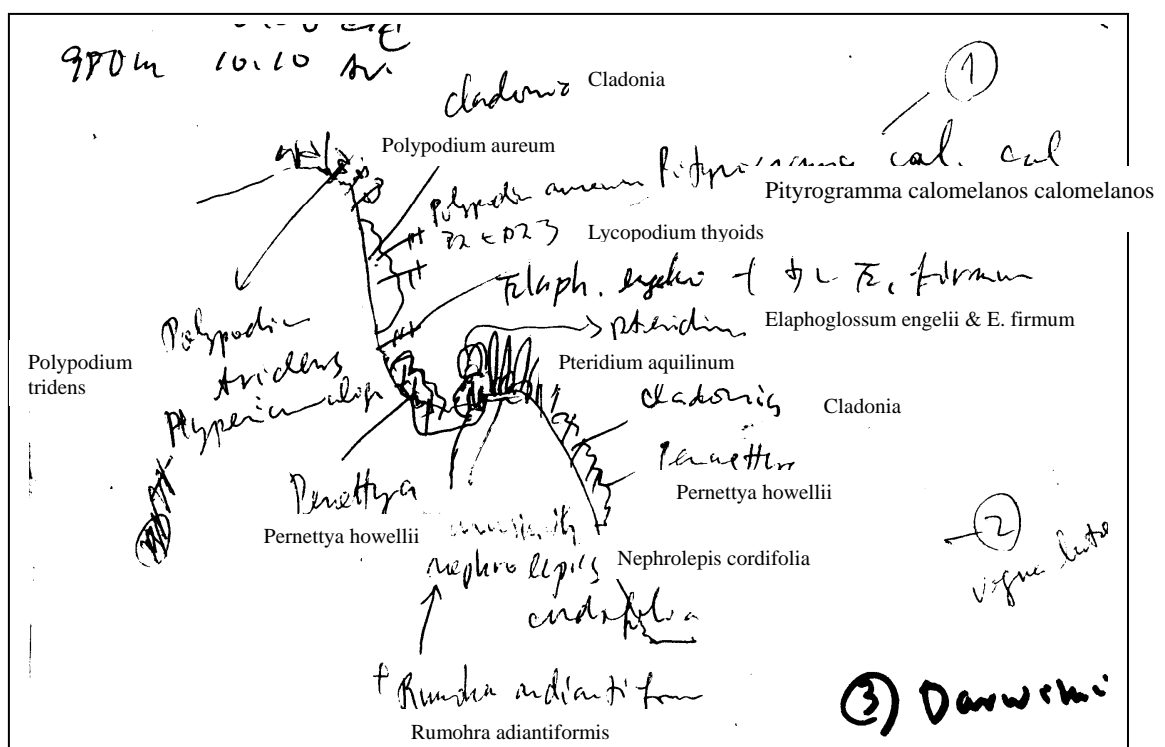 980m 10.10
Cladonia Cladonia
①
Polypodium aureum
Polypodi aureum Pityrogramma cal. cal
Pityrogramma calomelanos calomelanos
Lycopodium thyoids
Elaph. engelii + E. firmum
→ pteridium Elaphoglossum engelii & E. firmum
Polypodium
tridens
Polypodium
tridens
Pteridium aquilinum
Cladonia Cladonia
Pernettya
Pernettya howellii
Pernettya
Pernettya howellii
②
nephrolepis Nephrolepis cordifolia
cordifolia
+ Rumohra adiantiform
Rumohra adiantiformis
③ Darwini